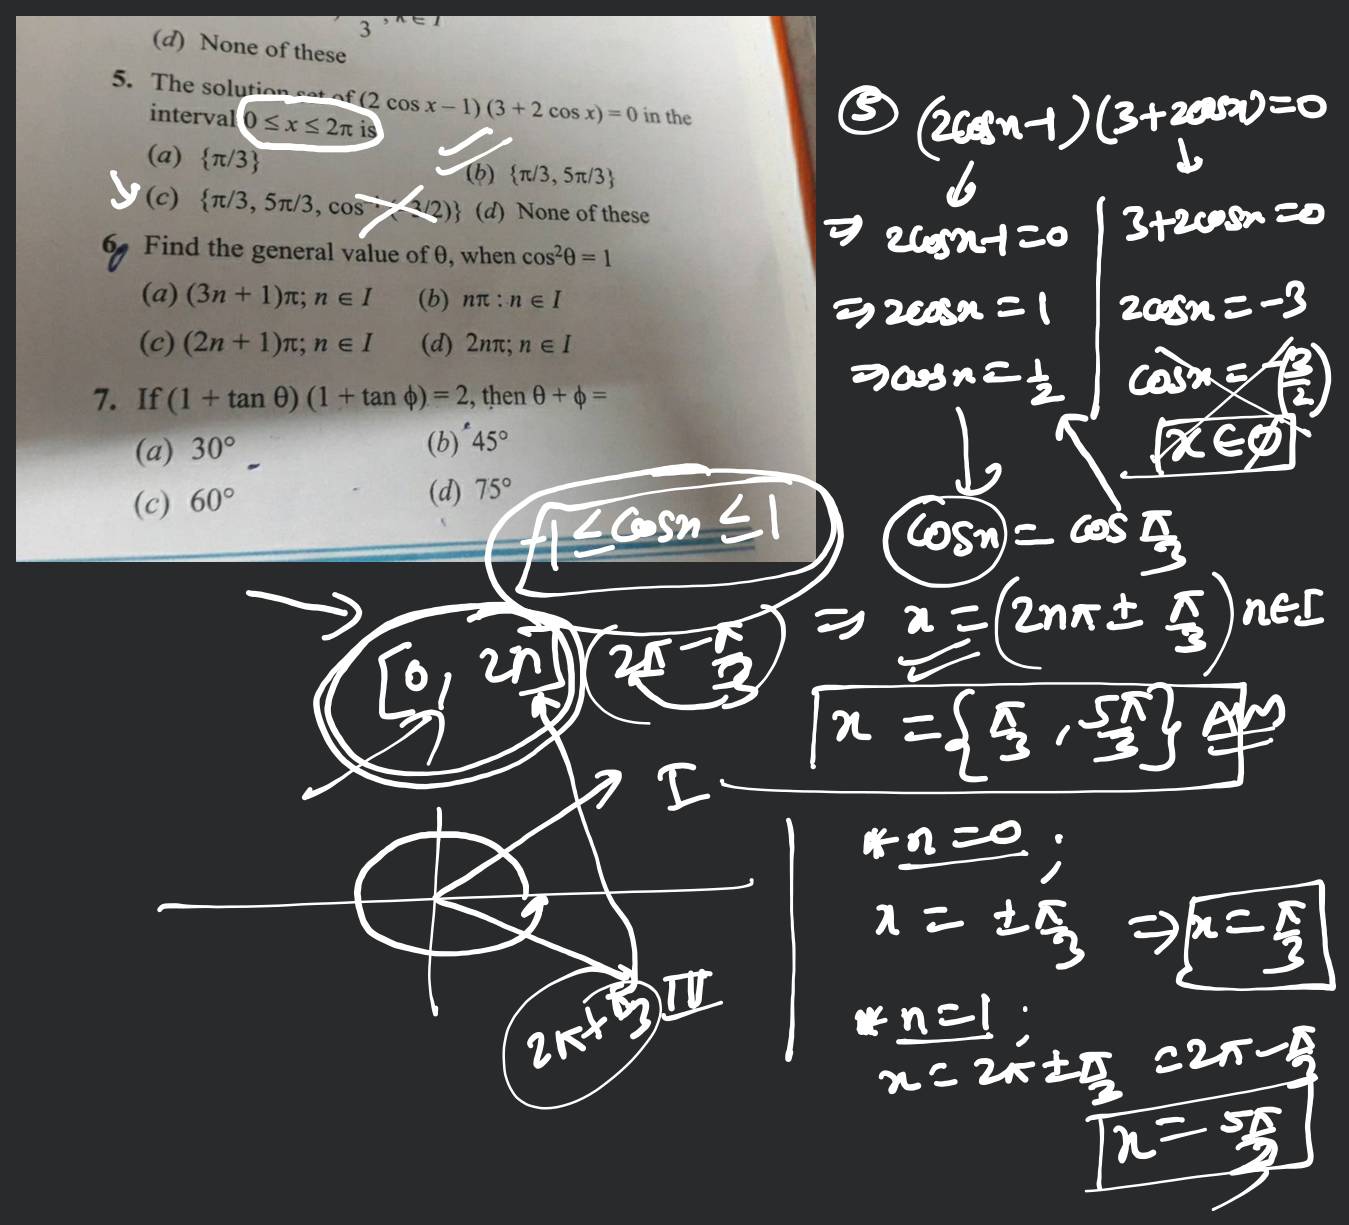 3 , n ∈ I
(d) None of these
5. The solution set of (2 cos x – 1) (3 + 2 cos x) = 0 in the
interval 0 ≤ x ≤ 2π is
(a) {π/3}
(b) {π/3, 5π/3}
(c) {π/3, 5π/3, cos⁻¹ (–3/2)} (d) None of these
6. Find the general value of θ, when cos²θ = 1
(a) (3n + 1)π; n ∈ I (b) nπ : n ∈ I
(c) (2n + 1)π; n ∈ I (d) 2nπ; n ∈ I
7. If (1 + tan θ) (1 + tan ϕ) = 2, then θ + ϕ =
(a) 30° (b) 45°
(c) 60° (d) 75°
-1 ≤ cosx ≤ 1
[0, 2π] (2π - π/3)
I
IV
2π + π/3
⑤ (2cosx-1)(3+2cosx)=0
⇒ 2cosx-1=0
⇒ 2cosx = 1
⇒ cosx = 1/2
3+2cosx=0
2cosx = -3
cosx = -(3/2)
x ∈ ϕ
cosx = cos π/3
⇒ x = (2nπ ± π/3) n∈I
x = {π/3, 5π/3} Ans
* n=0 ;
x = ± π/3 ⇒ x = π/3
* n=1 ;
x = 2π ± π/3 = 2π - π/3
x = 5π/3